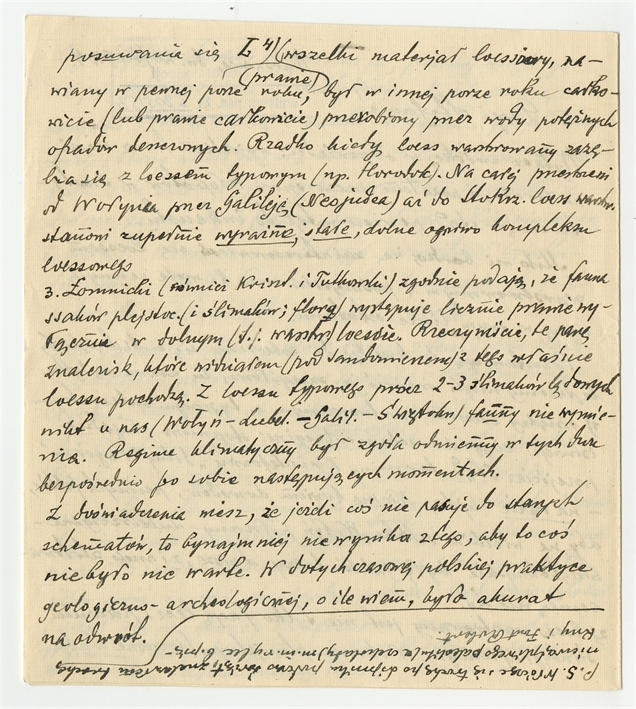 posuwania się L 4) (wszelki materjał loessowy, na-
wiany w pewnej porze (prawie) roku, był w innej porze roku całko-
wicie (lub prawie całkowicie) przerobiony przez wody potężnych
opadów deszczowych. Rzadko kiedy loess warstwowany zazę-
bia się z loessem typowym (np. Horodok). Na całej przestrzeni
od Wołynia przez Galileję (Neojudea) aż do Stokrz. loess warstw.
stanowi zupełnie wyraźne, stałe, dolne ogniwo kompleksu
loessowego
3. Łomnicki (również Krisht. i Tutkowski) zgodnie podają, iż fauna
ssaków plejstoc. (i ślimaków i flora) występuje licznie prawie wy-
łącznie w dolnym (t.j. warstw) loessie. Rzeczywiście, te parę
znalezisk, które widziałem (pod Sandomierzem) z tego właśnie
loessu pochodzą. Z loessu typowego prócz 2-3 ślimaków lądowych
nikt u nas (Wołyń - Lubel. - Galil. -) fauny nie wymie-
nia. Regime klimatyczny był zgoła odmienny w tych dwu
bezpośrednio po sobie następujących momentach.
Z doświadczenia wiesz, że jeżeli coś nie pasuje do starych
schematów, to bynajmniej nie wynika z tego, aby to coś
nie było nic warte. W dotychczasowej polskiej praktyce
geologiczno-archeologicznej, o ile wiem, było akurat
na odwrót.
P. S. się trochę